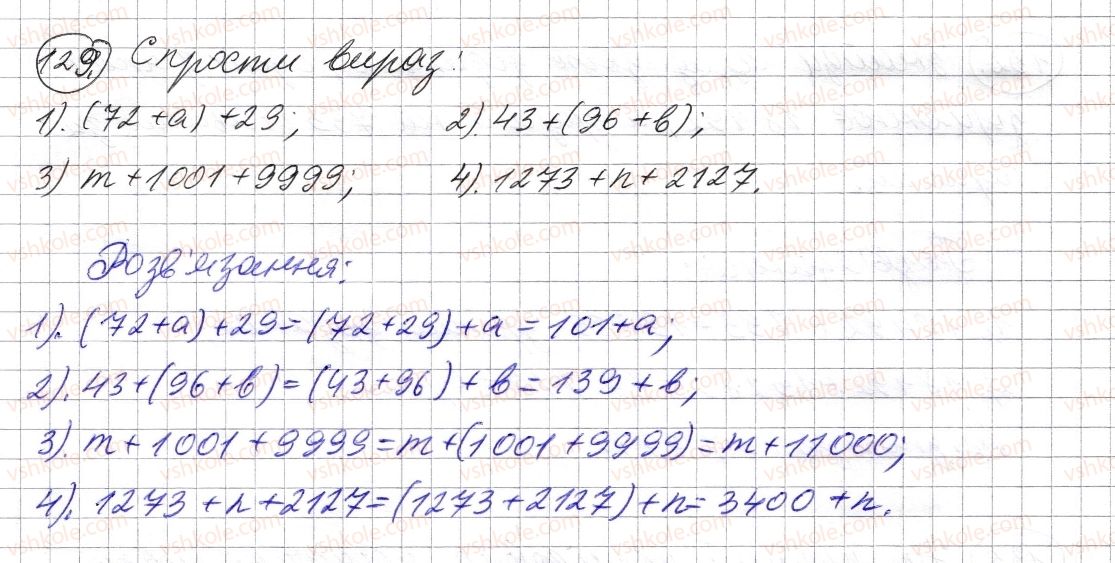 129. Спрости вираз:
1). (72+a)+29; 2). 43+(96+b);
3) m+1001+9999; 4). 1273+n+2127.
Розв'язання:
1). (72+a)+29=(72+29)+a=101+a;
2). 43+(96+b)=(43+96)+b=139+b;
3). m+1001+9999=m+(1001+9999)=m+11000;
4). 1273+n+2127=(1273+2127)+n=3400+n.